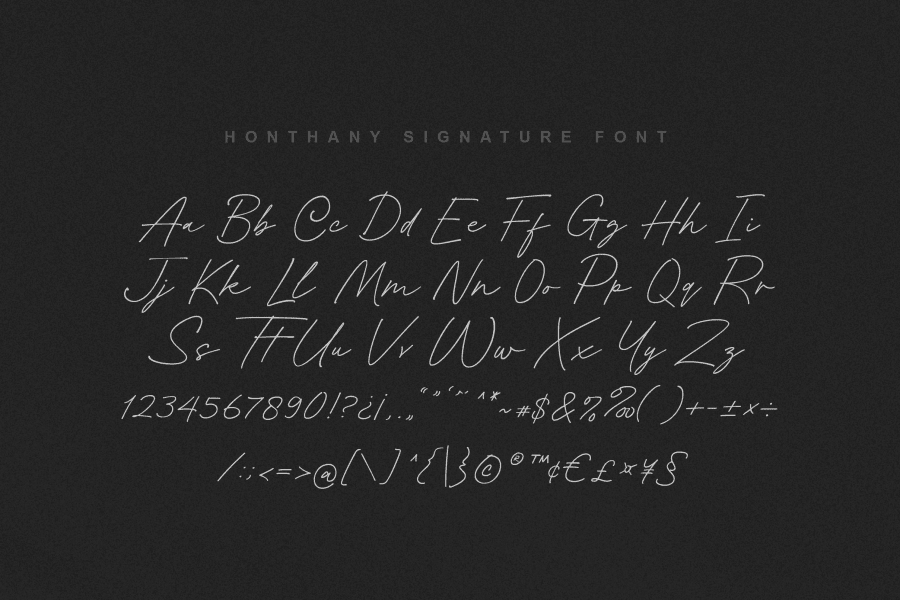 HONTHANY SIGNATURE FONT
Aa Bb Cc Dd Ee Ff Gg Hh Ii
Jj Kk Ll Mm Nn Oo Pp Qq Rr
Ss Tt Uu Vv Ww Xx Yy Zz
1234567890!?¿¡,..„“”‘’~^*~#$&%‰()+-±×÷
/:;<=>@[\]^{|}©®™¢€£¤¥§